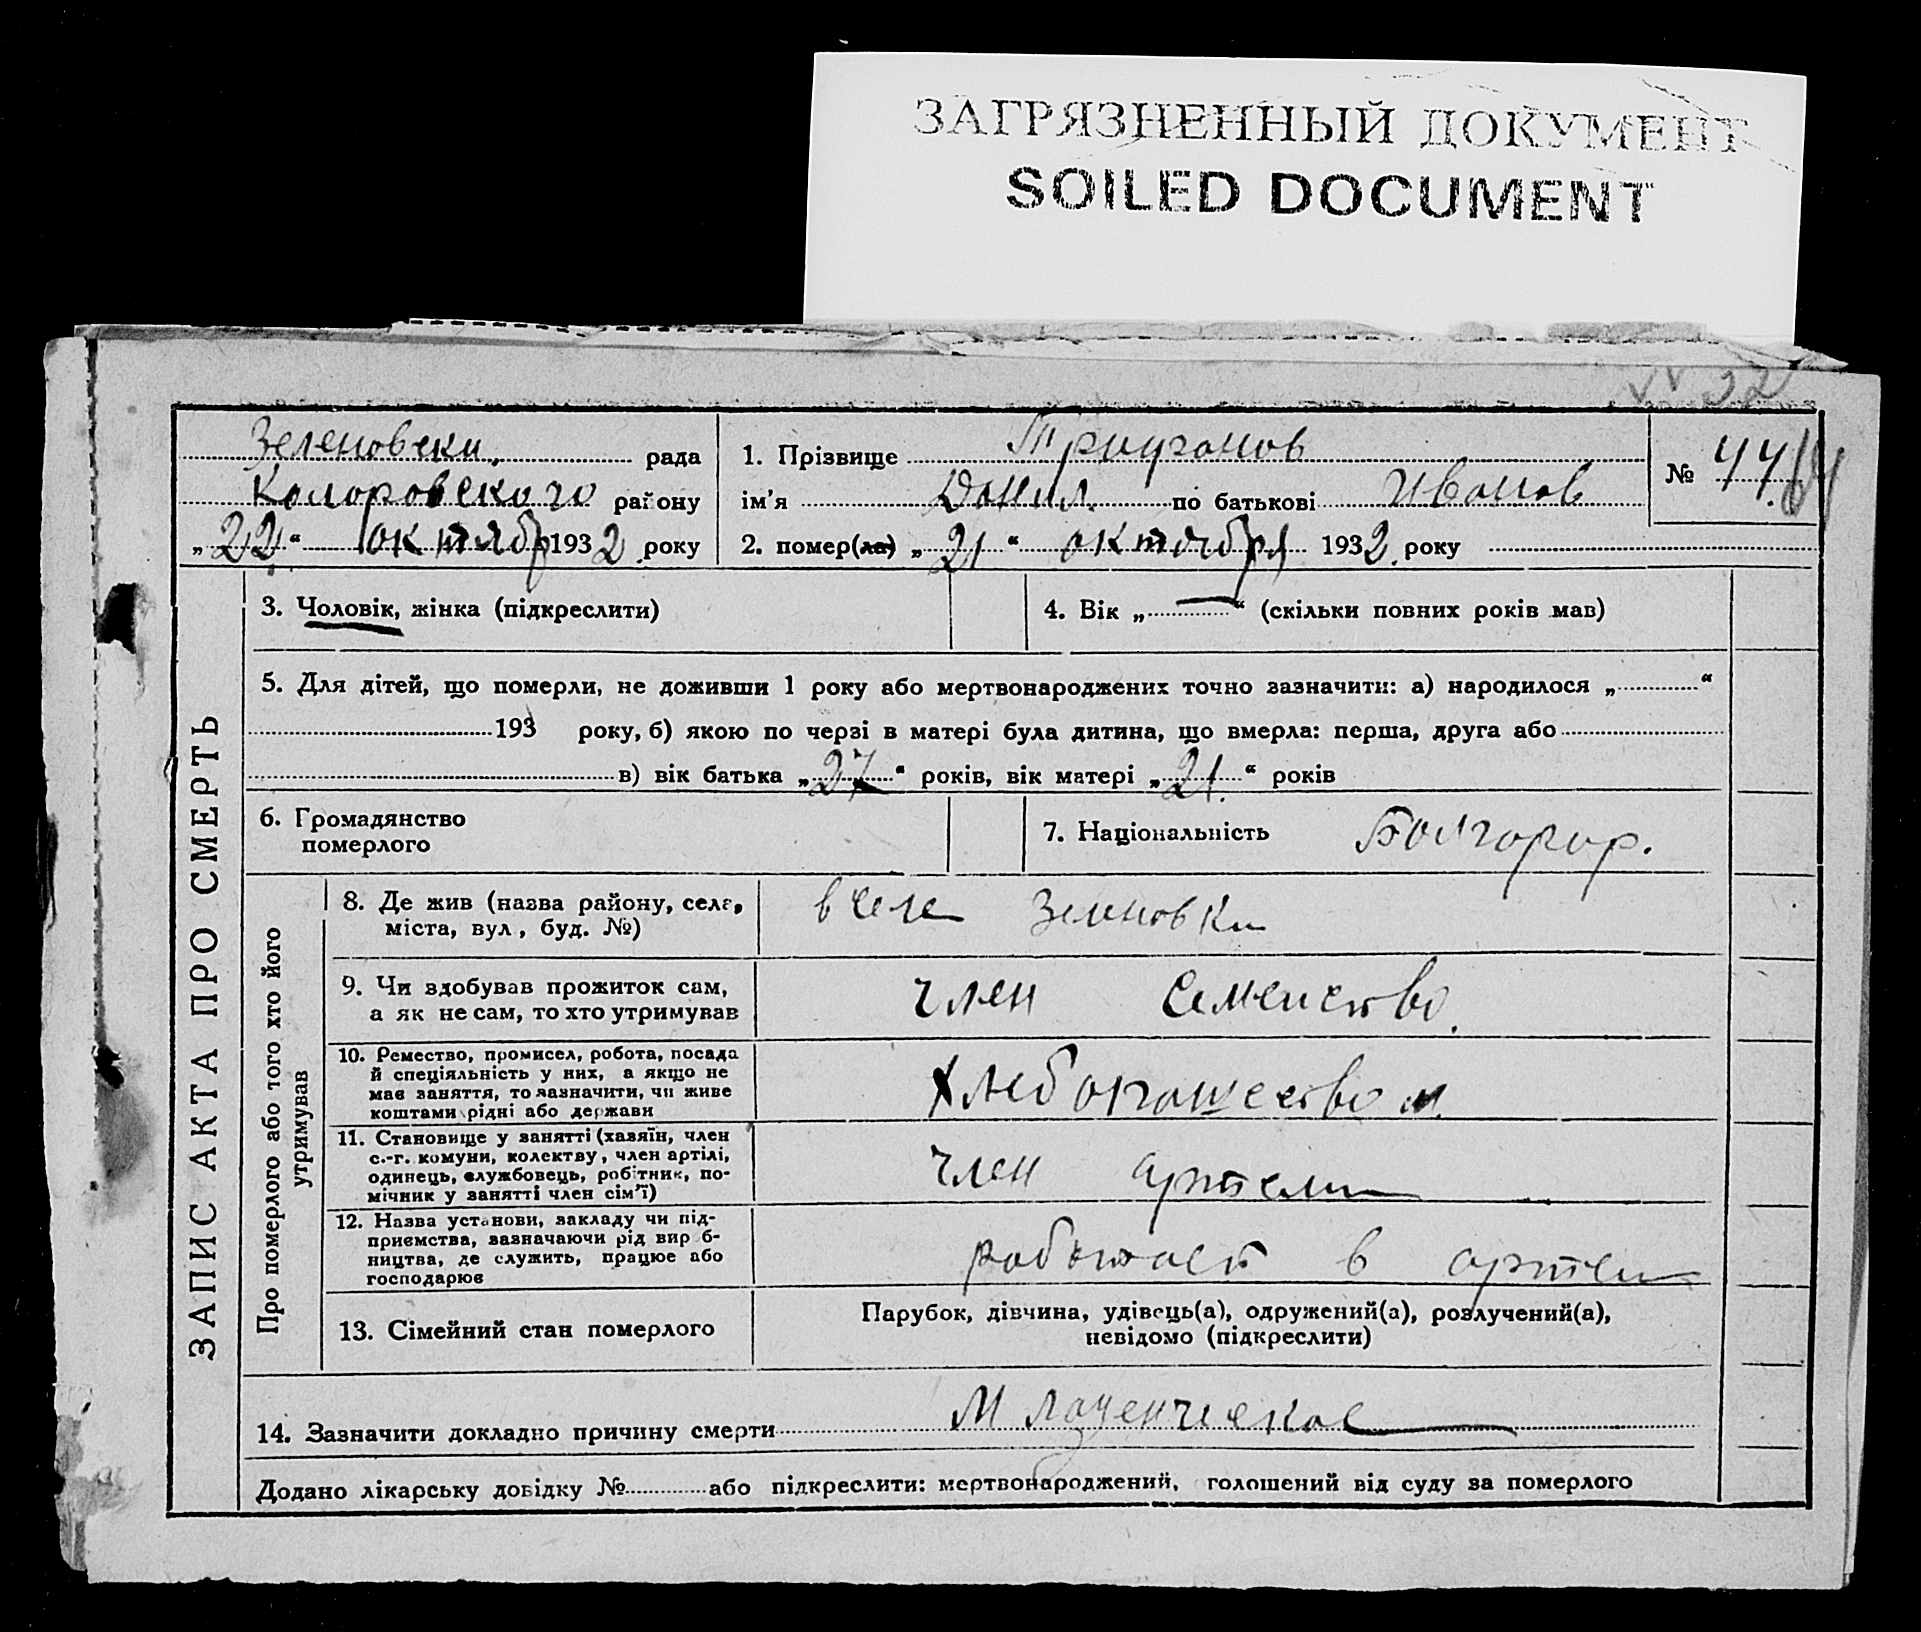 ЗАГРЯЗНЕННЫЙ ДОКУМЕНТ
SOILED DOCUMENT
32
Зеленовски. рада
Коларовского району
„22“ октябр 1932. року
1. Прізвище Трифонов
ім'я Данил. по батькові Иванов
2. помер(ла) „21“ октября 1932. року
№ 44
ЗАПИС АКТА ПРО СМЕРТЬ
3. Чоловік, жінка (підкреслити)
4. Вік „—“ (скільки повних років мав)
5. Для дітей, що померли, не доживши 1 року або мертвонароджених точно зазначити: а) народилося „ “
193 року, б) якою по черзі в матері була дитина, що вмерла: перша, друга або
в) вік батька „27“ років, вік матері „21.“ років
6. Громадянство
померлого
7. Національність Болгарор.
Про померлого або того хто його
утримував
8. Де жив (назва району, села,
міста, вул., буд. №)
в селе Зеленовки
9. Чи здобував прожиток сам,
а як не сам, то хто утримував
член семейство.
10. Ремество, промисел, робота, посада
й спеціяльність у них, а якщо не
має заняття, то зазначити, чи живе
коштами рідні або держави
Хлебопашество м.
11. Становище у занятті (хазяїн, член
с.-г. комуни, колективу, член артілі,
одинець, службовець, робітник, по-
мічник у занятті член сім'ї)
член артели
12. Назва установи, закладу чи під-
приємства, зазначаючи рід вироб-
ництва, де служить, працює або
господарює
работает в артели
13. Сімейний стан померлого
Парубок, дівчина, удівець(а), одружений(а), розлучений(а),
невідомо (підкреслити)
14. Зазначити докладно причину смерти Младенческое
Додано лікарську довідку № або підкреслити: мертвонароджений, голошений від суду за померлого